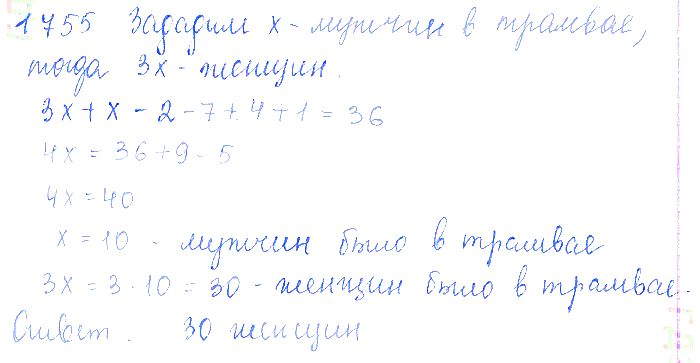 1755 Зададим х - мужчин в трамвае,
тогда 3х - женщин.
3х + х - 2 - 7 + 4 + 1 = 36
4х = 36 + 9 - 5
4х = 40
х = 10 - мужчин было в трамвае
3х = 3 · 10 = 30 - женщин было в трамвае.
Ответ. 30 женщин